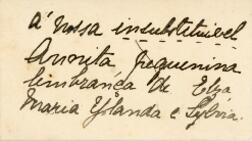 á nossa insubstituivel
Annita pequenina
lembrança de Elza
Maria Yolanda e Sylvia.